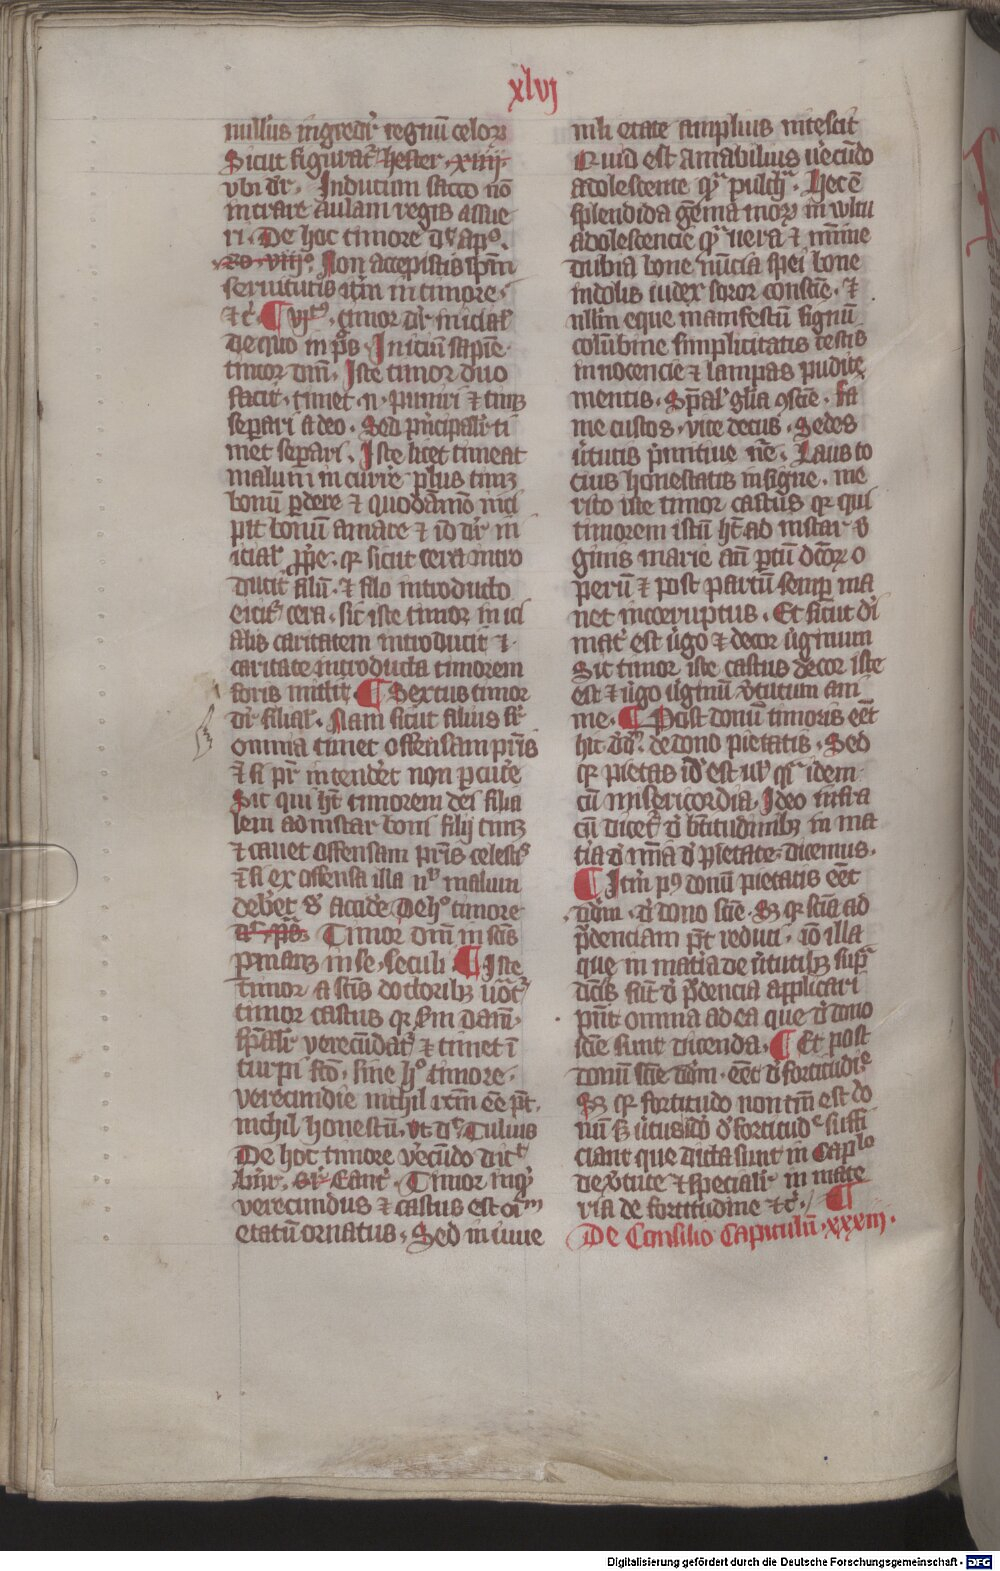 xlvj
nullus ingredit᷑ regnū celoꝝ
Sicut figurat᷑ hester · xiiij ·
vbi dr̄ · Indutum sacco nō
intrare aulam regis assue
ri · De hoc timore d apꝰ ·
Ro · viijꝰ · Non accepistis spm̄
seruitutis itm̄ in timore ·
⁊c̄ · ¶ vjtꝰ · timor dr̄ inicial᷑
de quo in ps̄ · Iniciū sapīe
timor dn̄i · Iste timor duo
facit · timet · n · puniri ⁊ timꝫ
separi a deo · Sed pͥncipalr̄ ti
met separi · Iste licet timeat
malum incurre᷑ plus timꝫ
bonū ꝑdere ⁊ quodāmō inci
pit bonū amare ⁊ iō dr̄ in
icial᷑ ꝓpe · qꝛ sicut cera intro
ducit filū · ⁊ filo introducto
eicit᷑ cera · sic iste timor inici
alis caritatem introducit ⁊ ·
caritate introducta timorem
foris mittit · ¶ Sextus timor
dr̄ filial᷑ · Nam sicut filius
omnia timet offensam pr̄is
⁊ si pr̄ intendet non ꝑcute᷑
Sic qui hꝫ timorem dei filia
lem ad instar boni filij timꝫ
⁊ cauet offensam pr̄is celestꝭ
⁊ si ex offensa illa malum
deb̄et accide᷑ De hͦ timore
dꝛ · ps̄ · Timor dn̄i in scū̄s
ꝑmanꝫ in sc̄lꝫ seculi ¶ Iste
timor a scīs doctoribꝫ uocat᷑
timor castus qꝛ sm̄ dam̄ ·
sp̄alr̄ verecūdat᷑ ⁊ timet ī
turpi fcō · sine hͦ timore ·
verecundie nichil itm̄ ēe pt̄ ·
nichil honestū · vt dc̄ · Tulius
De hoc timore verecūdo dicit
bern̄ · sr̄ Cant̄ · Timor inqͥ
verecundus ⁊ castus est oīm
etatū ornatus · Sed in iuue
nili etate amplius nitescit
Quid est amabilius verecūdo
adolescente qͣ pulchͬ · Hec ē
splendida gēma moꝝ in wltu
adolescencie qͣ uera ⁊ minime
dubia bone nūcia spei bone
indolis iudex soror conscīe · ⁊
nllm̄ eque manifestū signū
colūbine simplicitatis testis
innocencie ⁊ lampas pudice
mentis · Sp̄al᷑ gl̄ia ꝯscīe · fa
me custos · vite decus · Sedes
ūtutis pͥmitiue nē · Laus to
cius honestatis insigne · me
rito iste timor castus qꝛ qui
timorem istū hꝫ ad instar v
ginis marie an̄ ptū dcoꝝ o
perū ⁊ post partū semp ma
net incorruptus · Et sicut di
mat᷑ est ūgo ⁊ decor ūginum
Sic timor iste castus decor iste
est ⁊ ūgo ūginū v̄tutum ani
me · ¶ Post donū timoris eēt
hic dd̄m · de dono pietatis · Sed
qꝛ pietas idē est ul᷑ qͣi idem
cū misericordia · Ideo infra
cū dicet᷑ d̄ btītudinibꝫ in ma
tīa d̄ mīa d̄ pietate · dicemus ·
¶ Itm̄ pꝰ donū pietatis eēt
dd̄m · d̄ dono scīe · Sꝫ qꝛ scīa ad
p̄denciam pt̄ reduci · iō illa
que in mat̄ia de ūtutibꝫ supͣ
dictis sūt d̄ p̄dencia applicari
pn̄t omnia ad ea que d̄ dono
scīe sunt dicenda · ¶ Et post
donū scīe dd̄m · eēt d̄ fortitudīe
Sꝫ qꝛ fortitudo non tm̄ est do
nū sꝫ ūtus iō d̄ fortitudīe suffi
ciant que dicta sunt in cap̄lo
de v̄tute ⁊ specialr̄ in mate
ria de fortitudine ⁊c̄ · ¶
De Consilio Capitulū · xxxiij ·
Digitalisierung gefördert durch die Deutsche Forschungsgemeinschaft - DFG